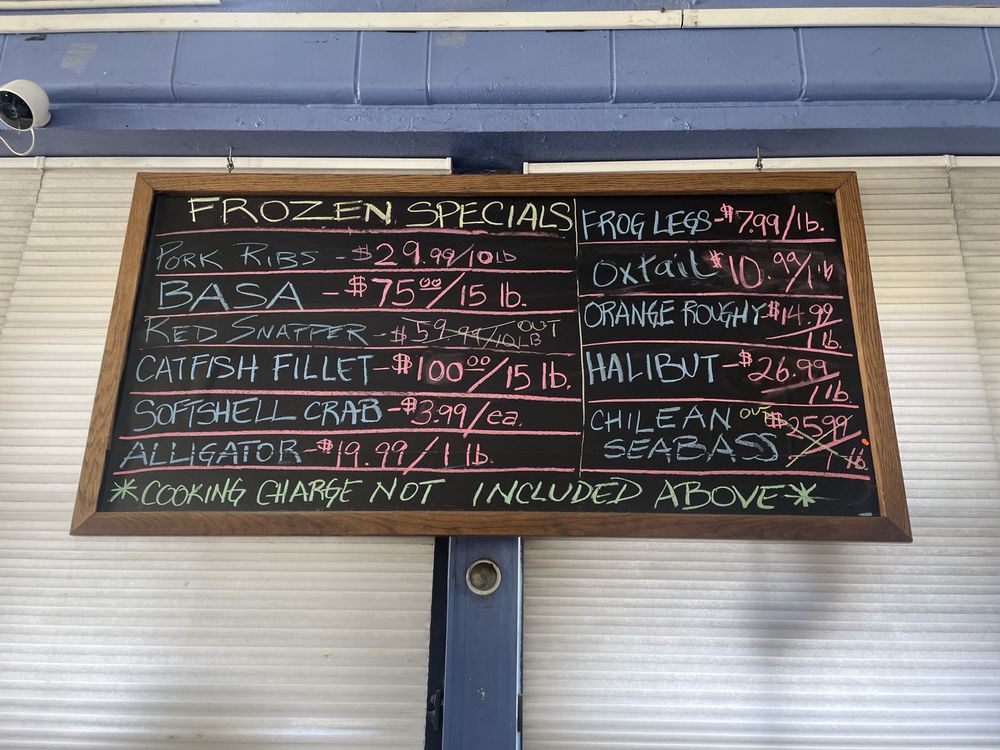 FROZEN SPECIALS
PORK RIBS - $29.99/10lb
BASA - $75.00/15 lb.
RED SNAPPER - $59.99/10LB OUT
CATFISH FILLET - $100.00/15 lb.
SOFTSHELL CRAB - $3.99/ea.
ALLIGATOR - $19.99/1 lb.
FROG LEGS - $7.99/lb.
Oxtail $10.99/1 lb
ORANGE ROUGHY $14.99
1 lb.
HALIBUT - $26.99
/1 lb.
CHILEAN OUT $25.99
SEABASS 1 lb.
*COOKING CHARGE NOT INCLUDED ABOVE*